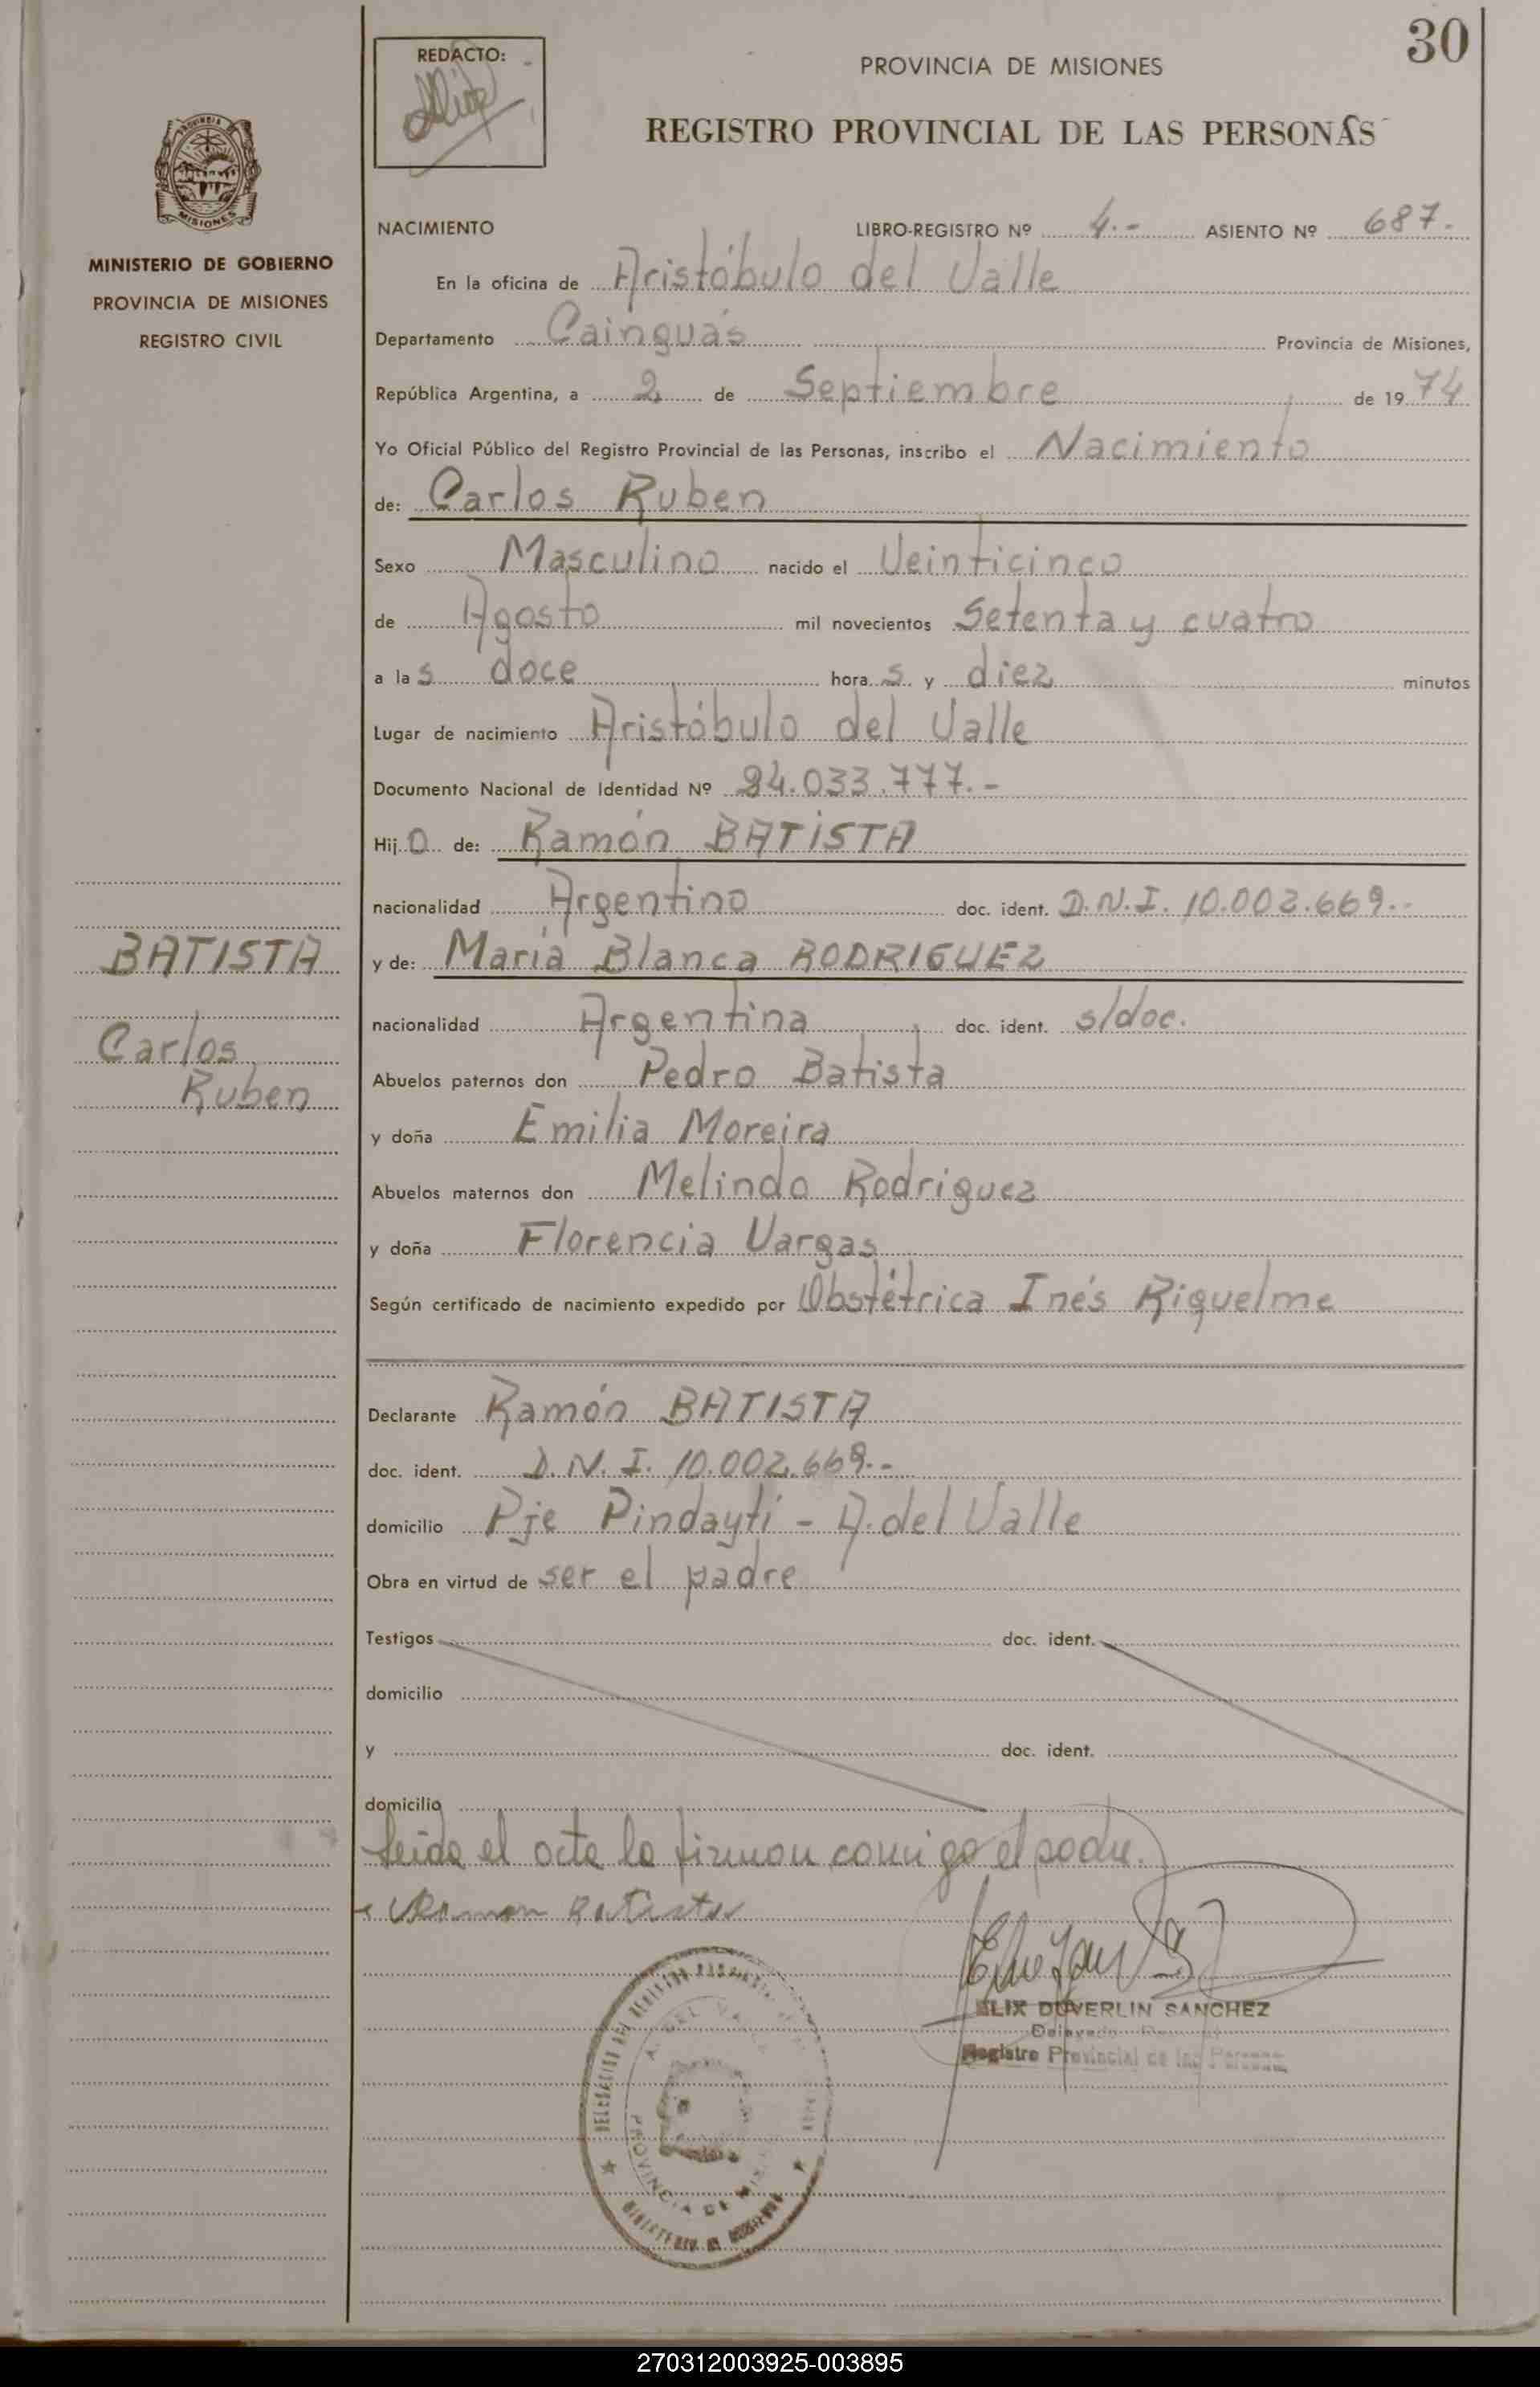 30
REDACTO:
PROVINCIA DE MISIONES
REGISTRO PROVINCIAL DE LAS PERSONAS
MISIONES
MINISTERIO DE GOBIERNO
PROVINCIA DE MISIONES
REGISTRO CIVIL
NACIMIENTO LIBRO-REGISTRO Nº 4.- ASIENTO Nº 687.
En la oficina de Aristóbulo del Valle
Departamento Cainguás Provincia de Misiones,
República Argentina, a 2 de Septiembre de 1974
Yo Oficial Público del Registro Provincial de las Personas, inscribo el Nacimiento
de: Carlos Ruben
Sexo Masculino nacido el Veinticinco
de Agosto mil novecientos Setenta y cuatro
a las doce horas y diez minutos
Lugar de nacimiento Aristóbulo del Valle
Documento Nacional de Identidad Nº 24.033.777.-
Hijo de: Ramón BATISTA
nacionalidad Argentino doc. ident. D.N.I. 10.002.669.-
BATISTA
y de: Maria Blanca RODRIGUEZ
nacionalidad Argentina doc. ident. s/doc.
Carlos
Ruben
Abuelos paternos don Pedro Batista
y doña Emilia Moreira
Abuelos maternos don Melindo Rodriguez
y doña Florencia Vargas
Según certificado de nacimiento expedido por Obstétrica Inés Riquelme
Declarante Ramón BATISTA
doc. ident. D.N.I. 10.002.669.-
domicilio Pje Pindayti - A. del Valle
Obra en virtud de ser el padre
Testigos doc. ident.
domicilio
y doc. ident.
domicilio
Leida el acta la firman conmigo el padre.
Ramon Batista
ELIX DUVERLIN SANCHEZ
Registro Provincial de las Personas
A. DEL VALLE
PROVINCIA DE MISIONES
MINISTERIO DE GOBIERNO
270312003925-003895